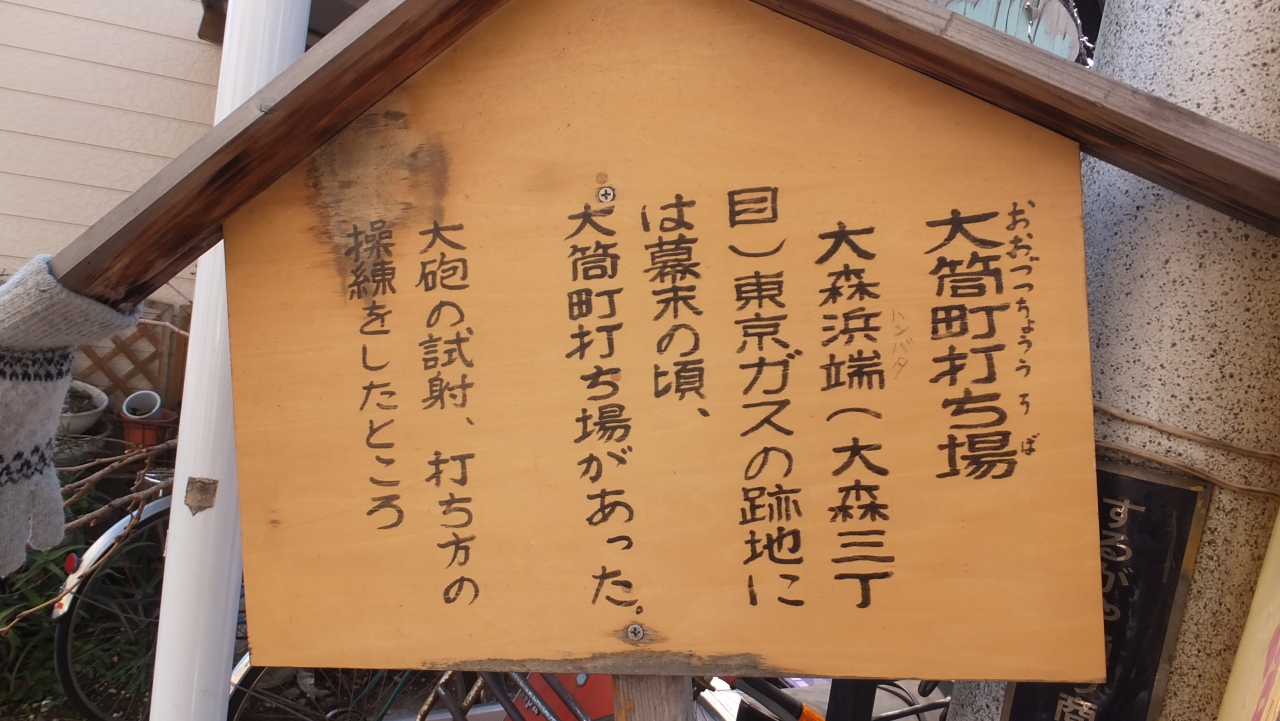 大筒町打ち場
おおづつちょううちば
大森浜端（大森三丁
ハマバタ
目）東京ガスの跡地に
は幕末の頃、
大筒町打ち場があった。
大砲の試射、打ち方の
操練をしたところ
するがや